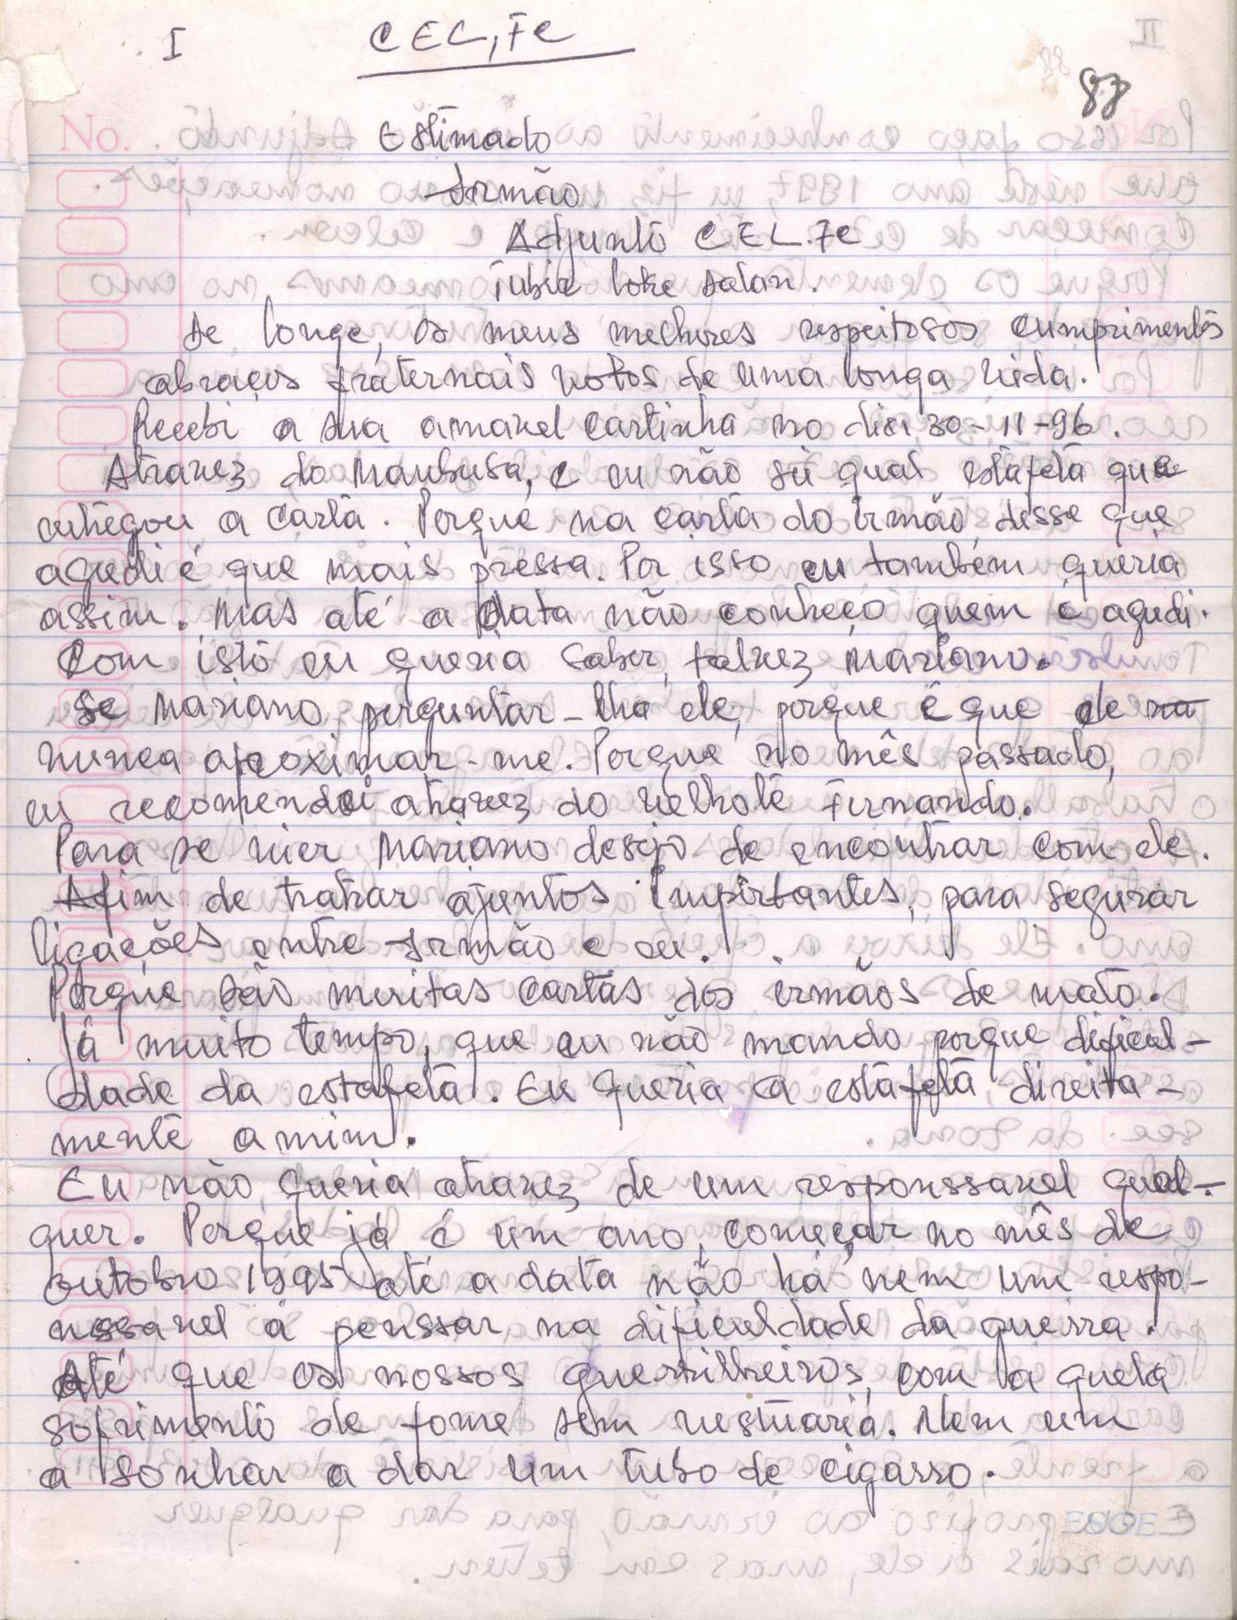 I
CEL, FC
88
No.
Estimado
Irmão
Adjunto CEL.FC
Tubir loke dalan.
De longe, os meus melhores respeitosos cumprimentos
abraços fraternais votos de uma longa vida.
Recebi a sua amavel cartinha no dia 30-11-96.
Atravez do Maubusa, e eu não sei qual estafeta que
entregou a carta. Porque na carta do Irmão, disse que
agudi é que mais pressa. Por isso eu também queria
assim. Mas até a data não conheço quem é agudi.
Com isto eu queria saber, talvez Mariano.
Se Mariano, perguntar-lhe ele, porque é que ele
nunca aproximar-me. Porque no mês passado,
eu recomendei atravez do velhote Fernando.
Para se vier Mariano desejo de encontrar com ele.
Afim de tratar ajuntos importantes, para segurar
ligações entre Irmão e eu.
Porque são muitas cartas dos irmãos de mato.
Já muito tempo, que eu não mando porque dificul-
dade da estafeta. Eu queria a estafeta direita-
mente a mim.
Eu não queria atravez de um responssavel qual-
quer. Porque já é um ano, começar no mês de
outobro 1995 até a data não há nem um respo-
nssavel á penssar na dificuldade da guerra.
Até que os nossos guerrilheiros, com a quela
sofrimento de fome sem vestuario. Nem um
a sonhar a dar um tubo de cigarro.